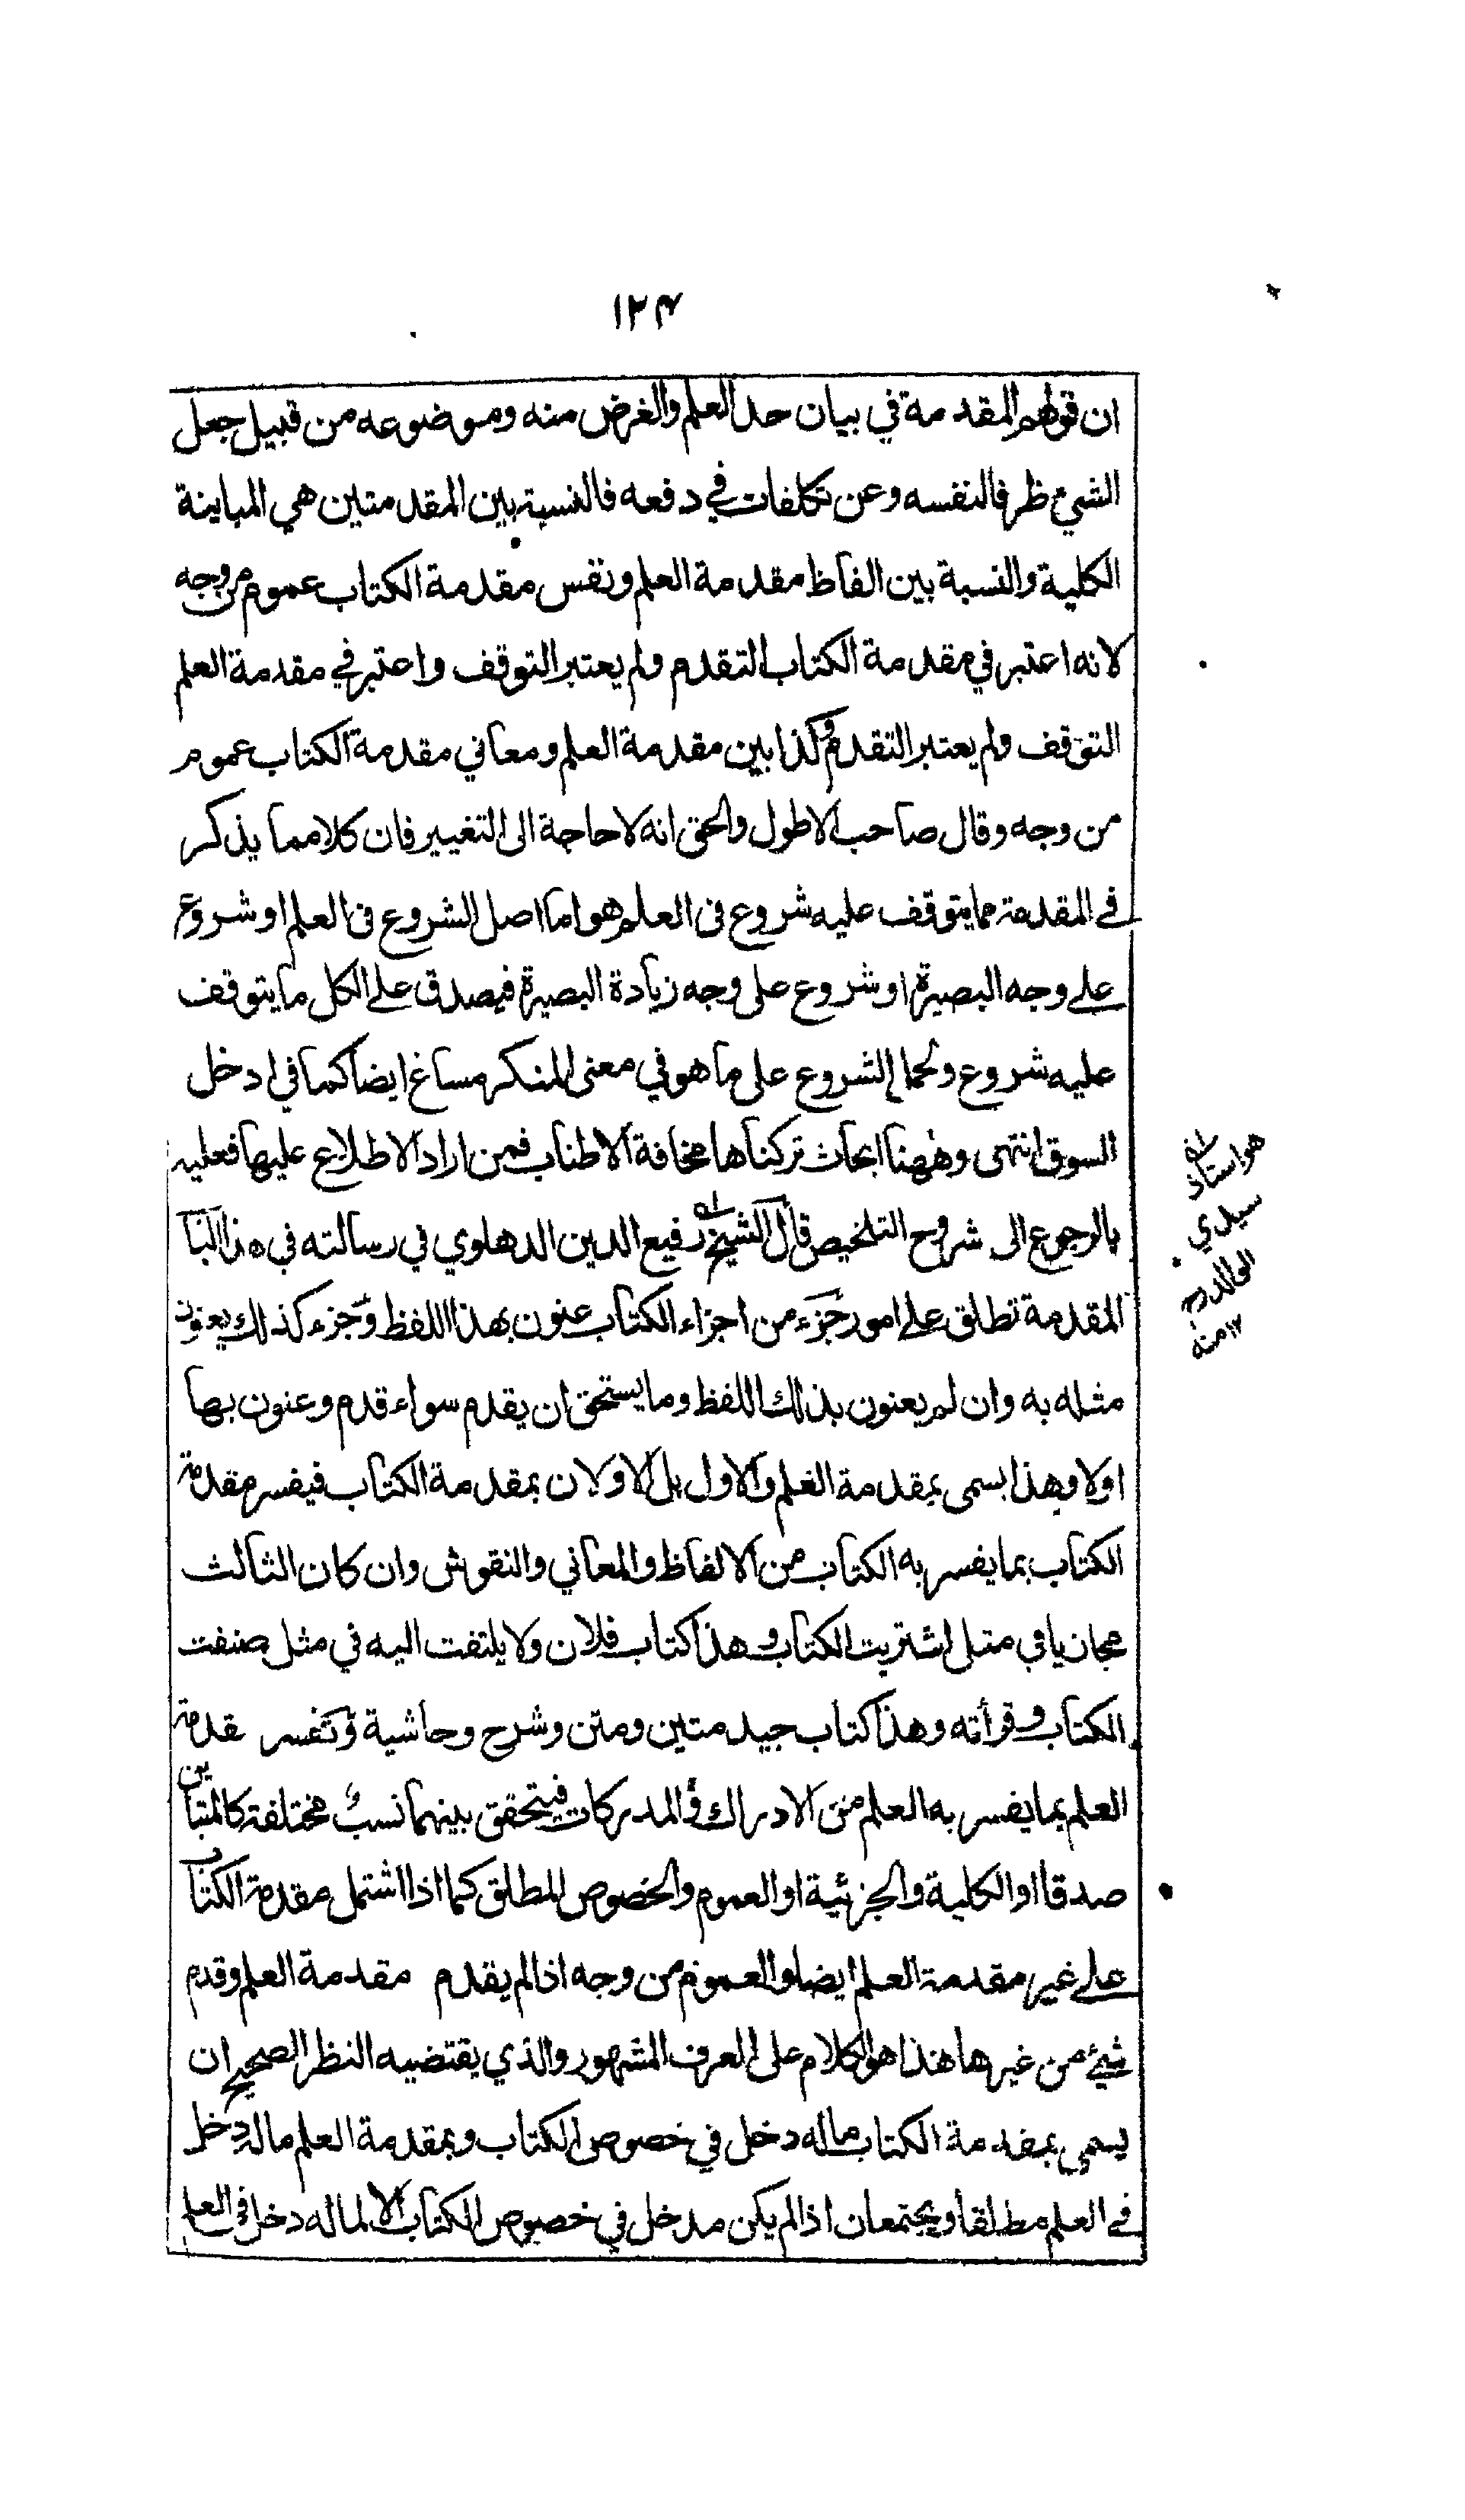 ١٢٤
ان قولهم المقدمة في بيان حد العلم والغرض منه وموضوعه من قبيل جعل
الشيء ظرفا لنفسه وعن تكلفات في دفعه فالنسبة بين المقدمتين هي المباينة
الكلية والنسبة بين الفاظ مقدمة العلم ونفس مقدمة الكتاب عموم من وجه
لانه اعتبر في مقدمة الكتاب التقدم ولم يعتبر التوقف واعتبر في مقدمة العلم
التوقف ولم يعتبر التقدم وكذا بين مقدمة العلم ومعاني مقدمة الكتاب عموم
من وجه وقال صاحب الاطول والحق انه لا حاجة الى التغيير فان كلا مما يذكر
في المقدمة مما يتوقف عليه شروع في العلم هو اما اصل الشروع في العلم او شروع
على وجه البصيرة او شروع على وجه زيادة البصيرة فيصدق على الكل ما يتوقف
عليه شروع ولحمل الشروع على ما هو في معنى المنكر مساغ ايضا كما في ادخل
السوق انتهى وههنا ابحاث تركناها مخافة الاطناب فمن اراد الاطلاع عليها فعليه
بالرجوع الى شروح التلخيص قال الشيخ رفيع الدين الدهلوي في رسالته في هذا الباب
المقدمة تطلق على امور جزء من اجزاء الكتاب عنون بهذا اللفظ وجزء كذلك يعنون
مثله به وان لم يعنون بذلك اللفظ وما يستحق ان يقدم سواء قدم وعنون بها
اولا وهذا يسمى بمقدمة العلم والاول بل الاولان بمقدمة الكتاب فيفسر مقدمة
الكتاب بما يفسر به الكتاب من الالفاظ والمعاني والنقوش وان كان الثالث
مجازيا في مثل اشتريت الكتاب وهذا كتاب فلان ولا يلتفت اليه في مثل صنفت
الكتاب وقرأته وهذا كتاب جيد متين ومتن وشرح وحاشية وتفسر مقدمة
العلم بما يفسر به العلم من الادراك والمدركات فيتحقق بينهما نسب مختلفة كالمتباين
صدقا او الكلية والجزئية او العموم والخصوص المطلق كما اذا اشتمل مقدمة الكتاب
على غير مقدمة العلم ايضا والعموم من وجه اذا لم يقدم مقدمة العلم وقدم
شيئ من غيرها هذا هو الكلام على العرف المشهور والذي يقتضيه النظر الصحيح ان
يسمى بمقدمة الكتاب ماله دخل في خصوص الكتاب وبمقدمة العلم ماله دخل
في العلم مطلقا ويجتمعان اذا لم يكن مدخل في خصوص الكتاب الا لماله دخل في العلم
هو استاذ
سيدي
الوالد
١٢ منه